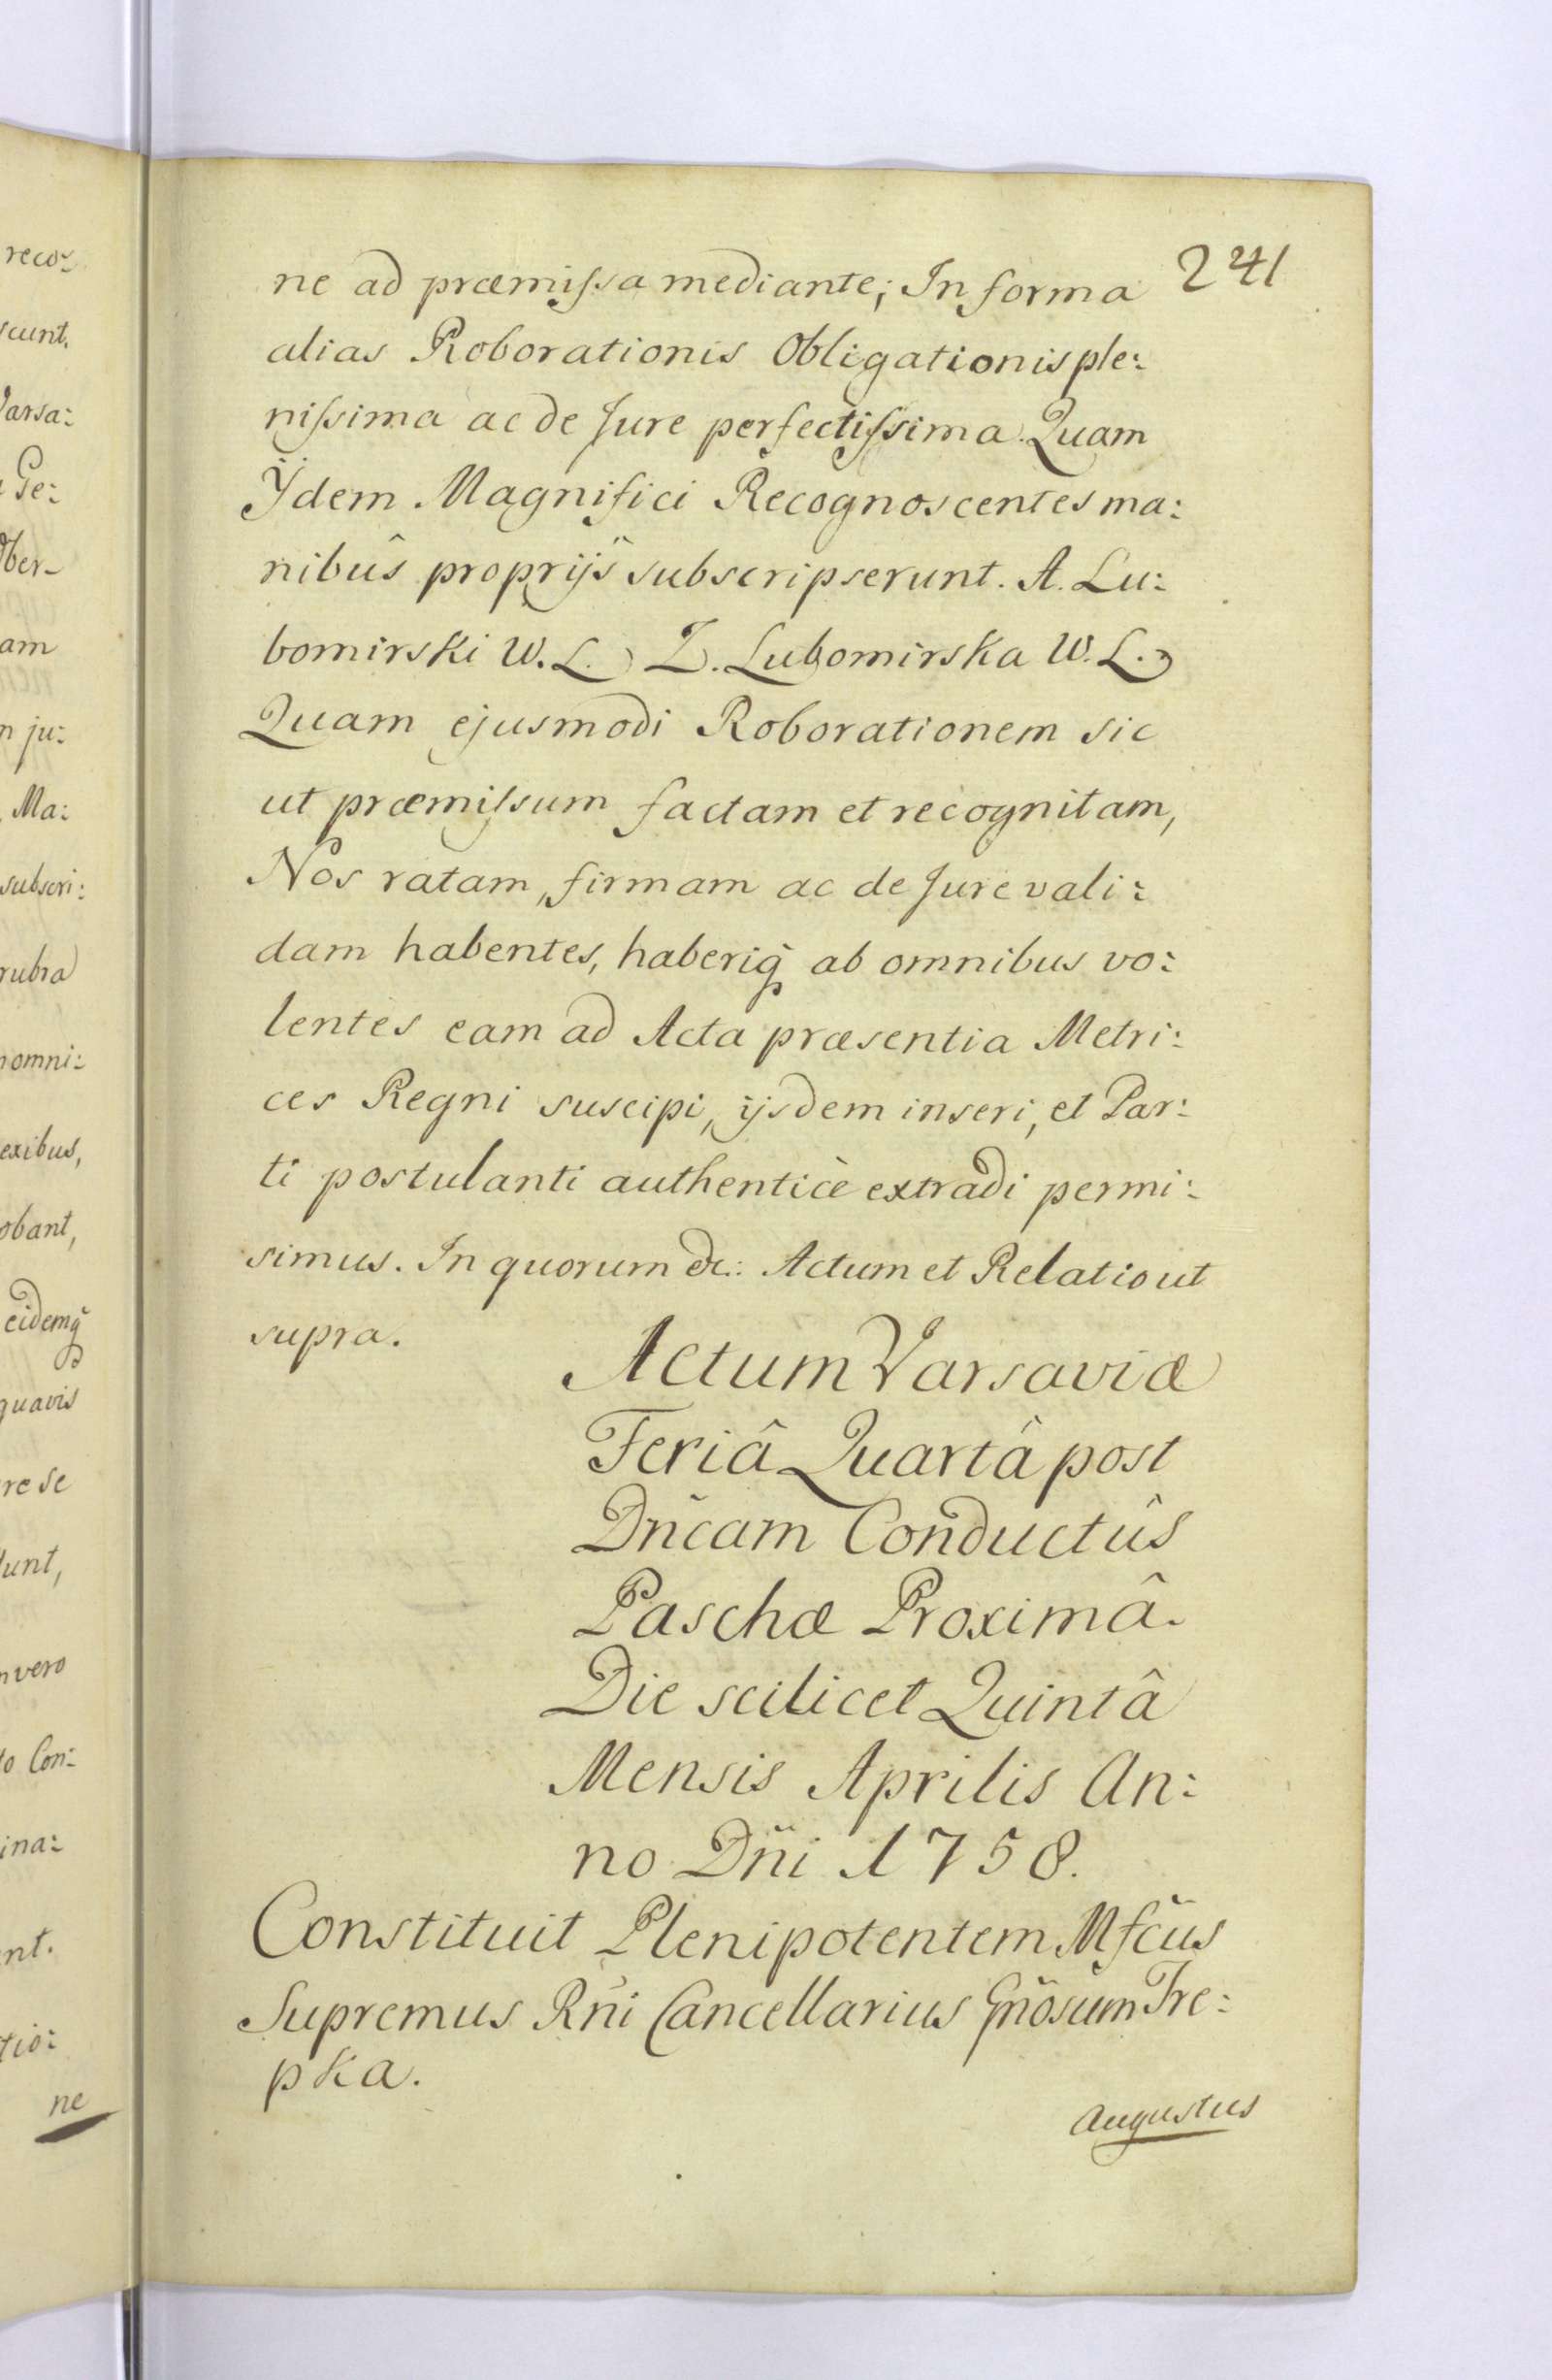 reco⹀
scunt,
Varsa:
Ge:
Ober-
am
m ju:
Ma:
subscri:
rubra
omni:
exibus,
obant,
eidemq̃
quavis
re se
unt,
vero
to Con:
ina:
nt.
tio:
ne
241
ne ad præmissa mediante; In forma
alias Roborationis Obligationis ple:
nissima ac de Jure perfectissima. Quam
Ijdem Magnifici Recognoscentes ma:
nibûs proprijs subscripserunt. A. Lu:
bomirski W. L. Z. Lubomirska W. L.
Quam ejusmodi Roborationem sic
ut præmissum factam et recognitam,
Nos ratam, firmam ac de Jure vali:
dam habentes, haberiq̃ ab omnibus vo:
lentes eam ad Acta præsentia Metri:
ces Regni suscipi, ijsdem inseri, et Par:
ti postulanti authenticè extradi permi:
simus. In quorum &c: Actum et Relatio ut
supra.
Actum Varsaviæ
Feriâ Quartâ post
Dñcam Conductûs
Paschæ Proximâ.
Die scilicet Quintâ
Mensis Aprilis An:
no Dñi 1758.
Constituit Plenipotentem Mfcus
Supremus Rñi Cancellarius Gñosum Tre:
pka.
Augustus